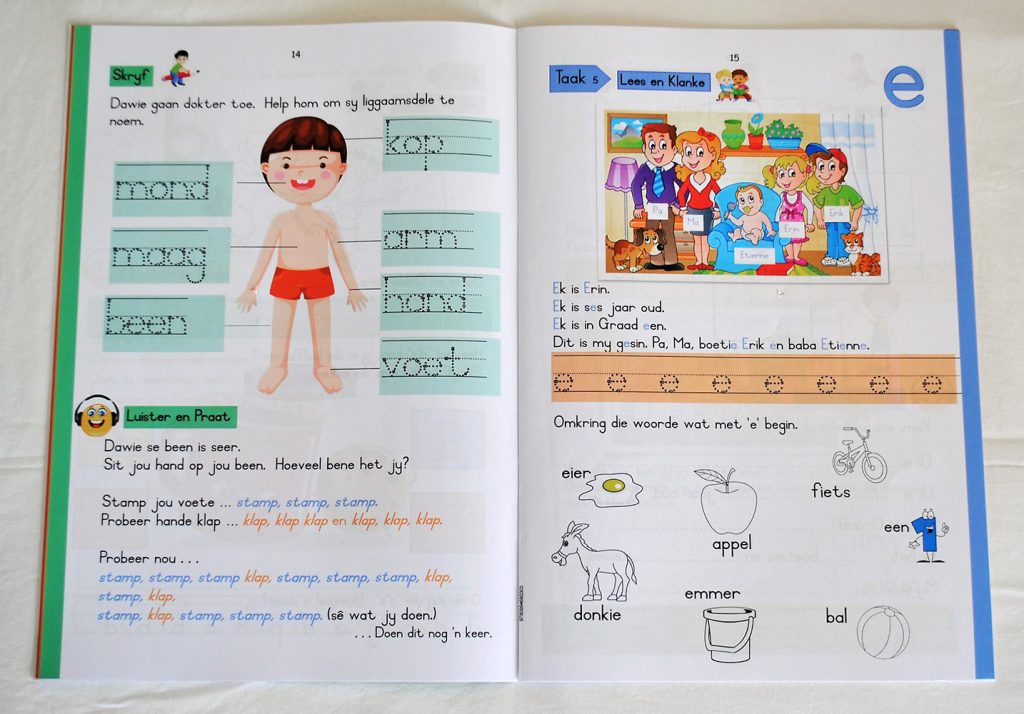 14
Skryf
Dawie gaan dokter toe. Help hom om sy liggaamsdele te
noem.
kop
mond
arm
maag
hand
been
voet
Luister en Praat
Dawie se been is seer.
Sit jou hand op jou been. Hoeveel bene het jy?
Stamp jou voete ... stamp, stamp, stamp.
Probeer hande klap ... klap, klap klap en klap, klap, klap.
Probeer nou ...
stamp, stamp, stamp klap, stamp, stamp, stamp, klap,
stamp, klap,
stamp, klap, stamp, stamp, stamp. (sê wat jy doen.)
... Doen dit nog 'n keer.
15
Taak 5
Lees en Klanke
e
Pa
Ma
Etienne
Erin
Erik
Ek is Erin.
Ek is ses jaar oud.
Ek is in Graad een.
Dit is my gesin. Pa, Ma, boetie Erik en baba Etienne.
e e e e e e e e
Omkring die woorde wat met 'e' begin.
eier
appel
fiets
een
donkie
emmer
bal